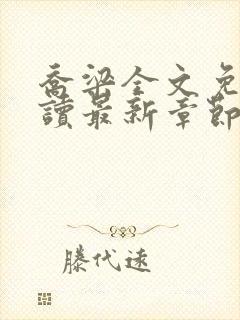 喬梁全文免
讀最新章節
滕代遠